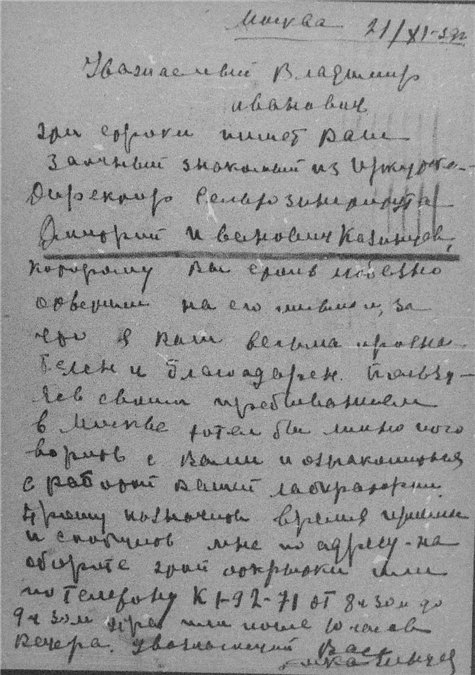 Москва 21/XI-32г
Уважаемый Владимир
Иванович
Эти строки пишет Ваш
заочный знакомый из Иркутска-
Директор
Дмитрий Иванович Казанцев,
которому Вы столь любезно
ответили на его письмо, за
что я Вам весьма призна-
телен и благодарен. Пользу-
ясь своим пребыванием
в Москве хотел бы лично пого
ворить с Вами и ознакомиться
с работой Вашей лаборатории.
Прошу назначить время
и сообщить мне по адресу-на
обороте этой открытки или
по телефону К 1-92-71 от 8ч 30м до
9ч 30м утра или после 10 часов
вечера. Уважающий Вас